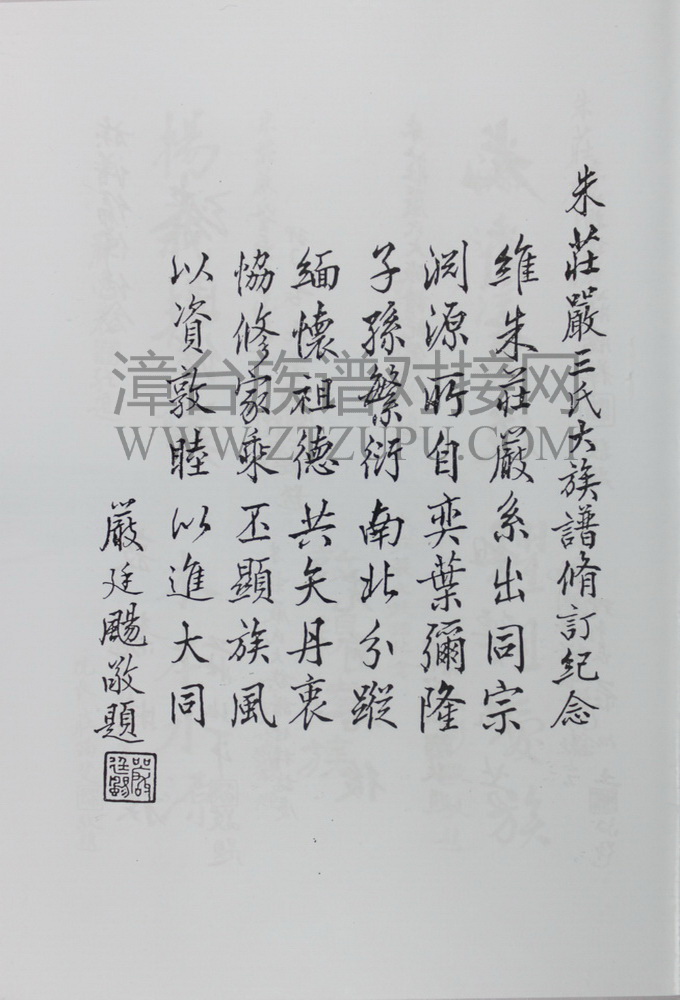 朱莊嚴三氏大族譜脩訂紀念
維朱莊嚴系出同宗
淵源所自奕葉彌隆
子孫繁衍南北分蹤
緬懷祖德共矢丹衷
恊修家乘丕顯族風
以資敦睦以進大同
嚴廷颺敬題
嚴廷颺
漳台族谱对接网
WWW.ZTZUPU.COM